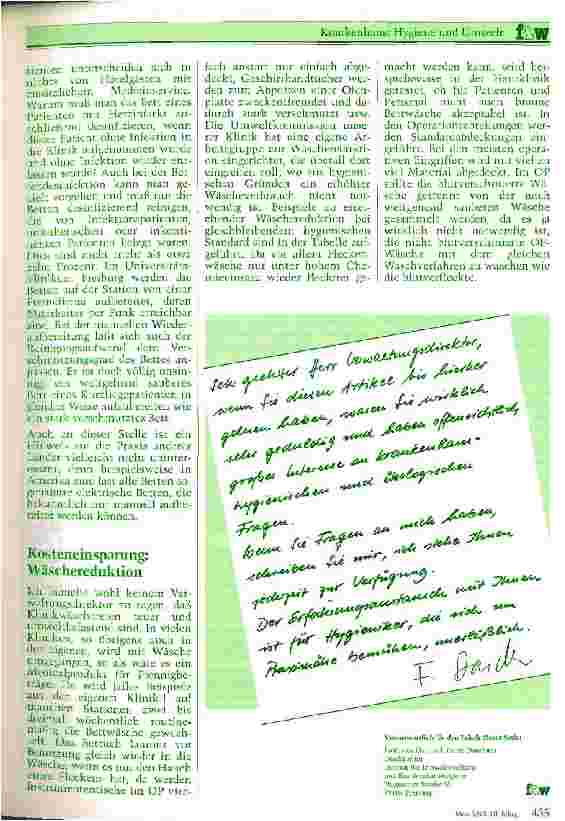 Krankenhaus Hygiene und Umwelt f&w
unterscheiden sich in
von Hotelgästen mit
Warum muß man das Bett eines
Patienten mit Herzinfarkt
desinfizieren, wenn
dieser Patient ohne Infektion in
die Klinik aufgenommen wurde
und ohne Infektion wieder ent-
lassen wurde? Auch bei der Bet-
tendesinfektion kann man ge-
zielt vorgehen und muß nur die
Betten desinfizierend reinigen,
die von Infektionspatienten,
oder inkonti-
nenten Patienten belegt waren.
Dies sind nicht mehr als etwa
zehn Prozent. Im Universitäts-
klinikum Freiburg werden die
Betten auf der Station von einer
Fremdfirma aufbereitet, deren
Mitarbeiter per Funk erreichbar
sind. Bei der manuellen Wieder-
aufbereitung läßt sich auch der
Reinigungsaufwand dem Ver-
schmutzungsgrad des Bettes an-
passen. Es ist doch völlig unsin-
nig, ein weitgehend sauberes
Bett eines Kurzliegepatienten in
gleicher Weise aufzubereiten wie
ein stark verschmutztes Bett.
Auch an dieser Stelle ist ein
Hinweis auf die Praxis anderer
Länder vielleicht nicht uninter-
essant, denn beispielsweise in
Amerika sind fast alle Betten so-
genannte elektrische Betten, die
bekanntlich nur manuell aufbe-
reitet werden können.
Kosteneinsparung:
Wäschereduktion
Ich brauche wohl keinem Ver-
waltungsdirektor zu sagen, daß
Klinikwäschereien teuer und
umweltbelastend sind. In vielen
Kliniken, so übrigens auch in
der eigenen, wird mit Wäsche
umgegangen, so als wäre es ein
Medicalprodukt für Pfennigbe-
träge. Da wird (alles Beispiele
aus der eigenen Klinik!) auf
manchen Stationen zwei bis
dreimal wöchentlich routine-
mäßig die Bettwäsche gewech-
selt. Das Stecktuch kommt vor
Benutzung gleich wieder in die
Wäsche, wenn es nur den Hauch
eines Fleckens hat, da werden
Instrumententische im OP vier-
fach anstatt nur einfach abge-
deckt, Geschirrhandtücher wer-
den zum Abputzen einer Ofen-
platte zweckentfremdet und da-
durch stark verschmutzt usw.
Die Umweltkommission unse-
rer Klinik hat eine eigene Ar-
beitsgruppe zur Wäschereduktion
eingerichtet, die überall dort
eingreifen soll, wo aus hygieni-
schen Gründen ein erhöhter
Wäscheverbrauch nicht not-
wendig ist. Beispiele zu ent-
sprechender Wäschereduktion bei
gleichbleibendem hygienischen
Standard sind in der Tabelle auf-
geführt. Da vor allem Flecken-
wäsche nur unter hohem Che-
mieeinsatz wieder fleckenrein ge-
macht werden kann, wird bei-
spielsweise in der Hautklinik
getestet, ob für Patienten und
Personal nicht auch braune
Bettwäsche akzeptabel ist. In
den Operationsabteilungen wer-
den Standardabdeckungen ein-
geführt. Bei den meisten opera-
tiven Eingriffen wird mit viel zu
viel Material abgedeckt. Im OP
sollte die blutverschmutzte Wä-
sche getrennt von der noch
weitgehend sauberen Wäsche
gesammelt werden, da es ja
wirklich nicht notwendig ist,
die nicht blutverschmutzte OP-
Wäsche mit dem gleichen
Waschverfahren zu waschen wie
die blutbefleckte.
Sehr geehrter Herr Verwaltungsdirektor,
wenn Sie diesen Artikel bis hierher
gelesen haben, waren Sie wirklich
sehr geduldig und haben offensichtlich
großes Interesse an krankenhaus-
hygienischen und ökologischen
Fragen.
Wenn Sie Fragen an mich haben,
schreiben Sie mir, ich stehe Ihnen
jederzeit zur Verfügung.
Der Erfahrungsaustausch mit Ihnen
ist für Hygieniker, die sich um
Praxisnähe bemühen, unerläßlich.
F. Dasch
Verantwortlich für den Inhalt dieser Seite:
f&w
455